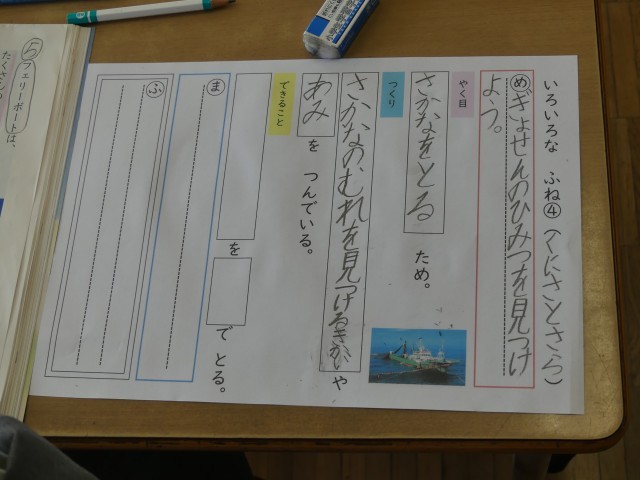 いろいろな ふね④(くにさとさら)
め ぎょせんのひみつを見つけ
よう。
やく目
さかなをとる ため。
つくり
さかなのむれを見つけるきかい や
あみ を つんでいる。
できること
を で とる。
ま
ふ
5
フェリーボートは、
たくさん